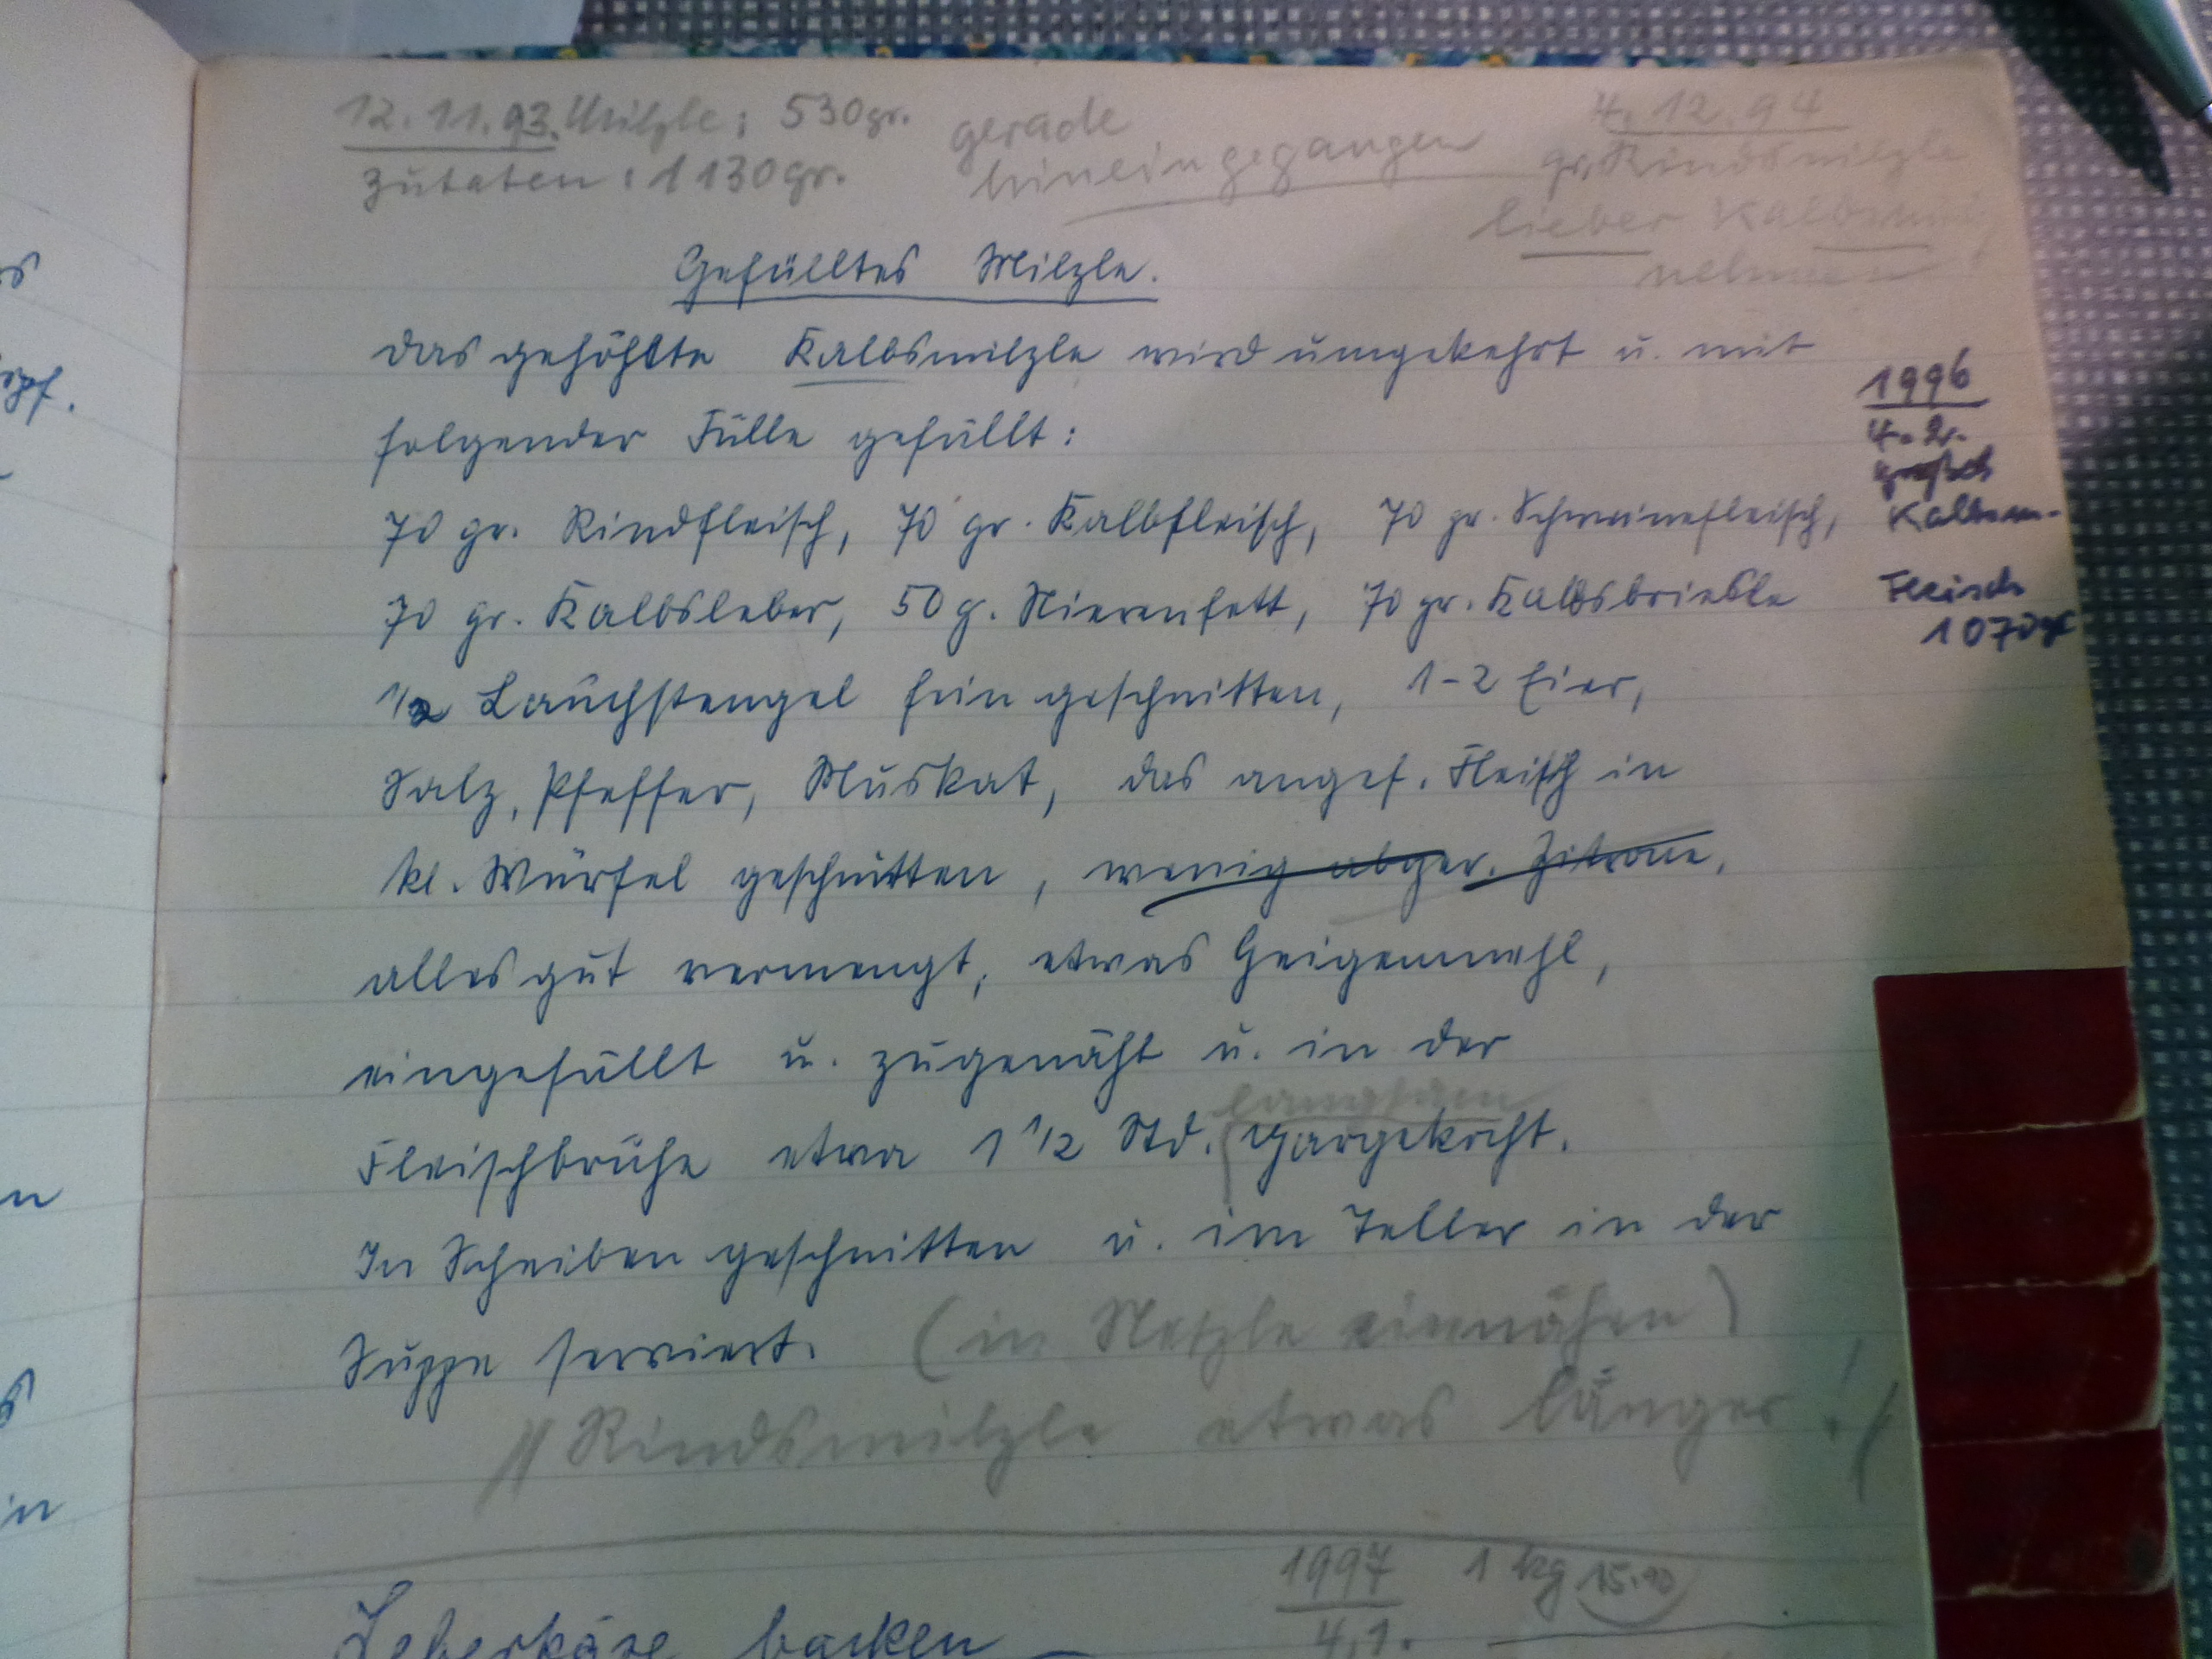 12.11.93. Milzle: 530gr. gerade
Zutaten: 1130gr. hineingegangen
4.12.94
gr. Rindsmilzle
lieber
nehmen!
Gefülltes Milzle.
das gehöhlte Kalbsmilzle wird umgekehrt u. mit
folgender Fülle gefüllt:
70 gr. Rindfleisch, 70 gr. Kalbfleisch, 70 gr. Schweinefleisch,
70 gr. Kalbsleber, 50 g. Nierenfett, 70 gr. Kalbsbriesle
1/2 Lauchstengel fein geschnitten, 1-2 Eier,
Salz, Pfeffer, Muskat, das angef. Fleisch in
kl. Würfel geschnitten, wenig abger. Zitrone,
alles gut vermengt, etwas
eingefüllt u. zugenäht u. in der
langsam
Fleischbrühe etwa 1 1/2 Std. gargekocht.
In Scheiben geschnitten u. im Teller in der
Suppe serviert. (in Netzle einnähen)
Rindsmilzle etwas länger!
1996
4.2.
großes
Kalbsm.
Fleisch
1070gr
Leberkäse backen
1997 1 kg 15.90
4.1.